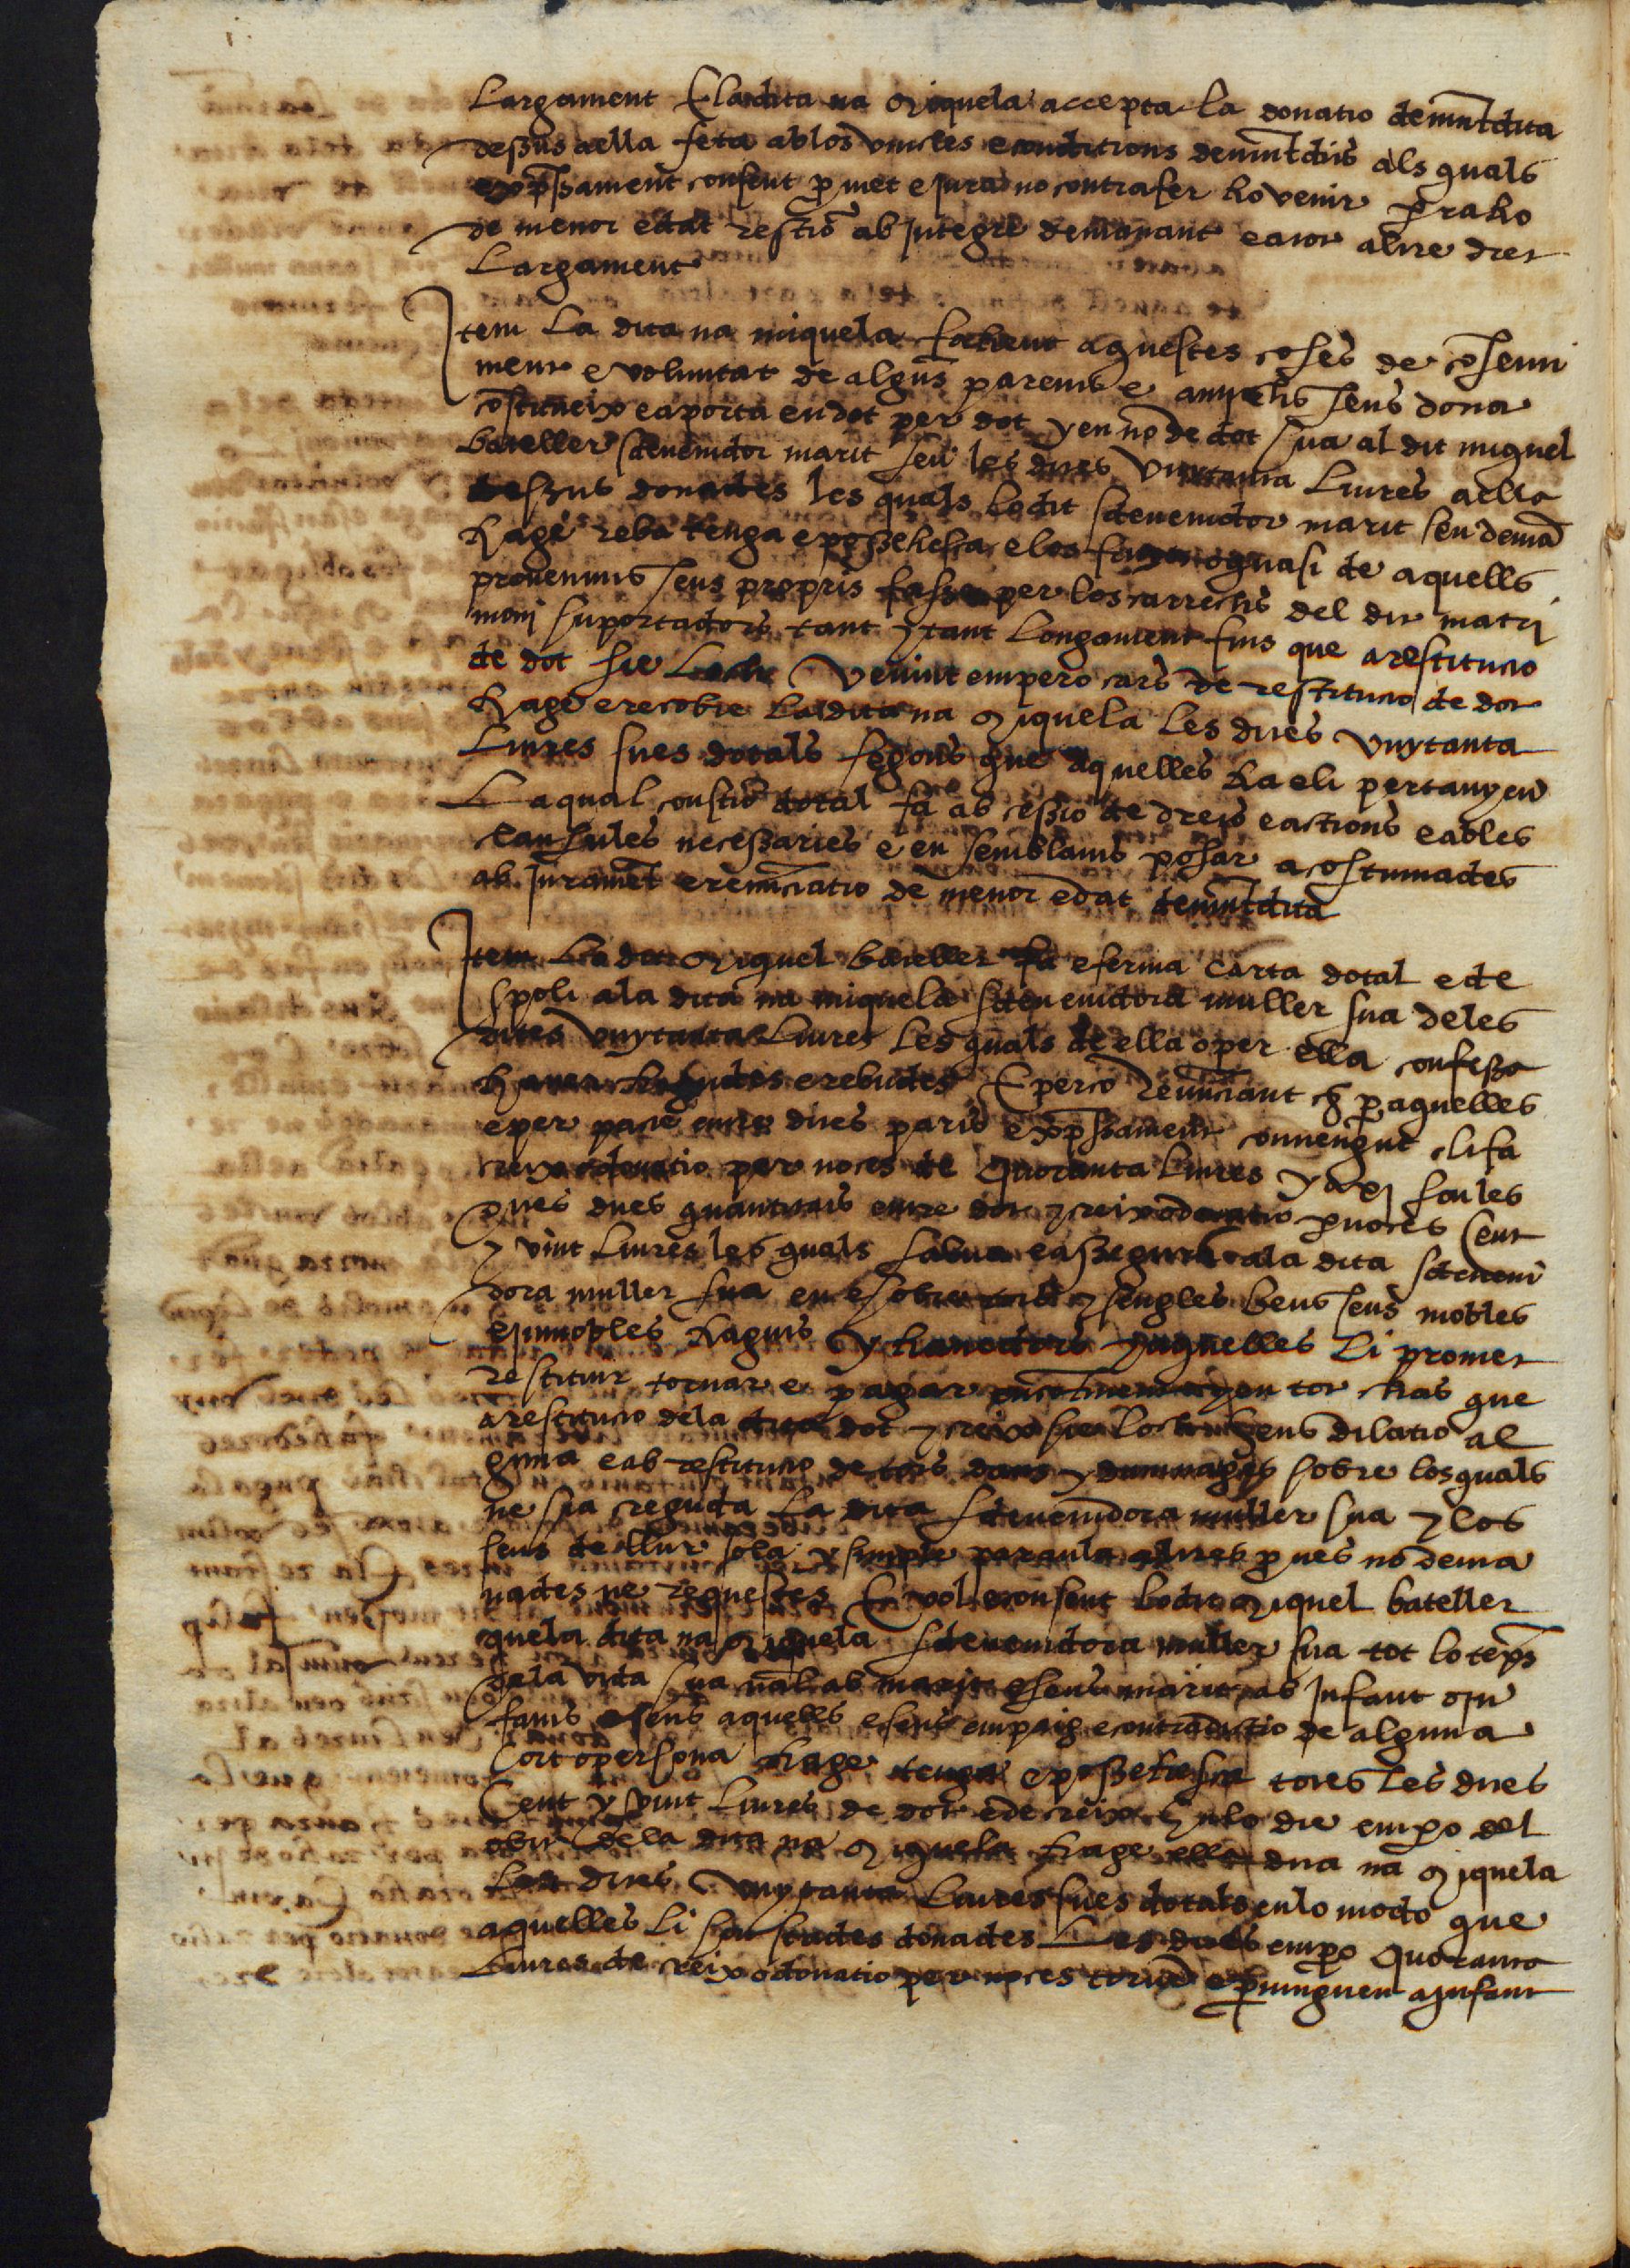 Largament E la dita na Miquela accepta la donatio demuntdita
dessus a ella feta ab los vincles e conditions demuntdits als quals
expssament consent pmet e jura no contrafer ho venir p raho
de menor edat restio ab integre demanant e a tot altre dret
Largament
Item la dita na miquela fahent aquestes coses de cosenti
ment e voluntat de alguns parents e amichs seus dona
costitueix e aporta en dot per dot y en no de dot sua al dit miquel
bateller sdevenidor marit seu les dites vuytanta liures a ella
dessus donades les quals lo dit sdevenidor marit seu dema
hage reba tenga e possehesca e los fruyts o quasi de aquells
provenints seus propris fassa per los carrechs del dit matri
moni suportadors tant y tant longament fins que a restitucio
de dot sie loch Venint empero cars de restitucio de dot
hage e recobre la dita na Miquela les dites vuytanta
liures sues dotals segons que aquelles ha eli pertanyen
La qual constio dotal fa ab cessio de drets e actions e ables
clausules necessaries e en semblants posar acostumades
ab jurament e renuciatio de menor edat demuntdita
Item lo dit Miquel bateller fa e ferma carta dotal e de
spoli a la dita na miquela sdevenidora muller sua de les
dites vuytanta liures les quals de ella o per ella confessa
haver hagudes e rebudes E perco renunciant &c p aquelles
e per pacte entre dites parts expssament convengut eli fa
creix o donatio per noces de quoranta liures y axi son les
pnes dues quantitats entre dot y creix o donatio p noces Cent
y vint liures les quals salva e assegura a la dita sdeveni
dora muller sua en e sobre tots y sengles bens seus mobles
e immobles haguts y havedors y aquelles li promet
restituir tornar e pagar encontinent y en tot cas que
a restitucio de la dita dot y creix sie loch sens dilatio al
guna e ab restitucio de tots dans y dampnatges sobre los quals
ne sia creguda la dita sdevenidora muller sua y los
seus de llur sola y simple paraula altres pves no dema
nades ne requestes E vol e consent lo dit Miquel bateller
que la dita na Miquela sdevenidora muller sua tot lo temps
de la vida sua ab marit e sens marit ab infant o in
fants e sens aquells e sens empaig e contradictio de alguna
Cort o persona hage tenga e possehesca totes les dites
Cent y vint liures de dot e de creix En lo die empo del
obit de la dita na Miquela hage ella dita na Miquela
les dites vuytanta liures sues dotals en lo modo que
aquelles li son stades donades Les dites empo quoranta
liures de creix o donatio per noces torne e pvinguen a infant